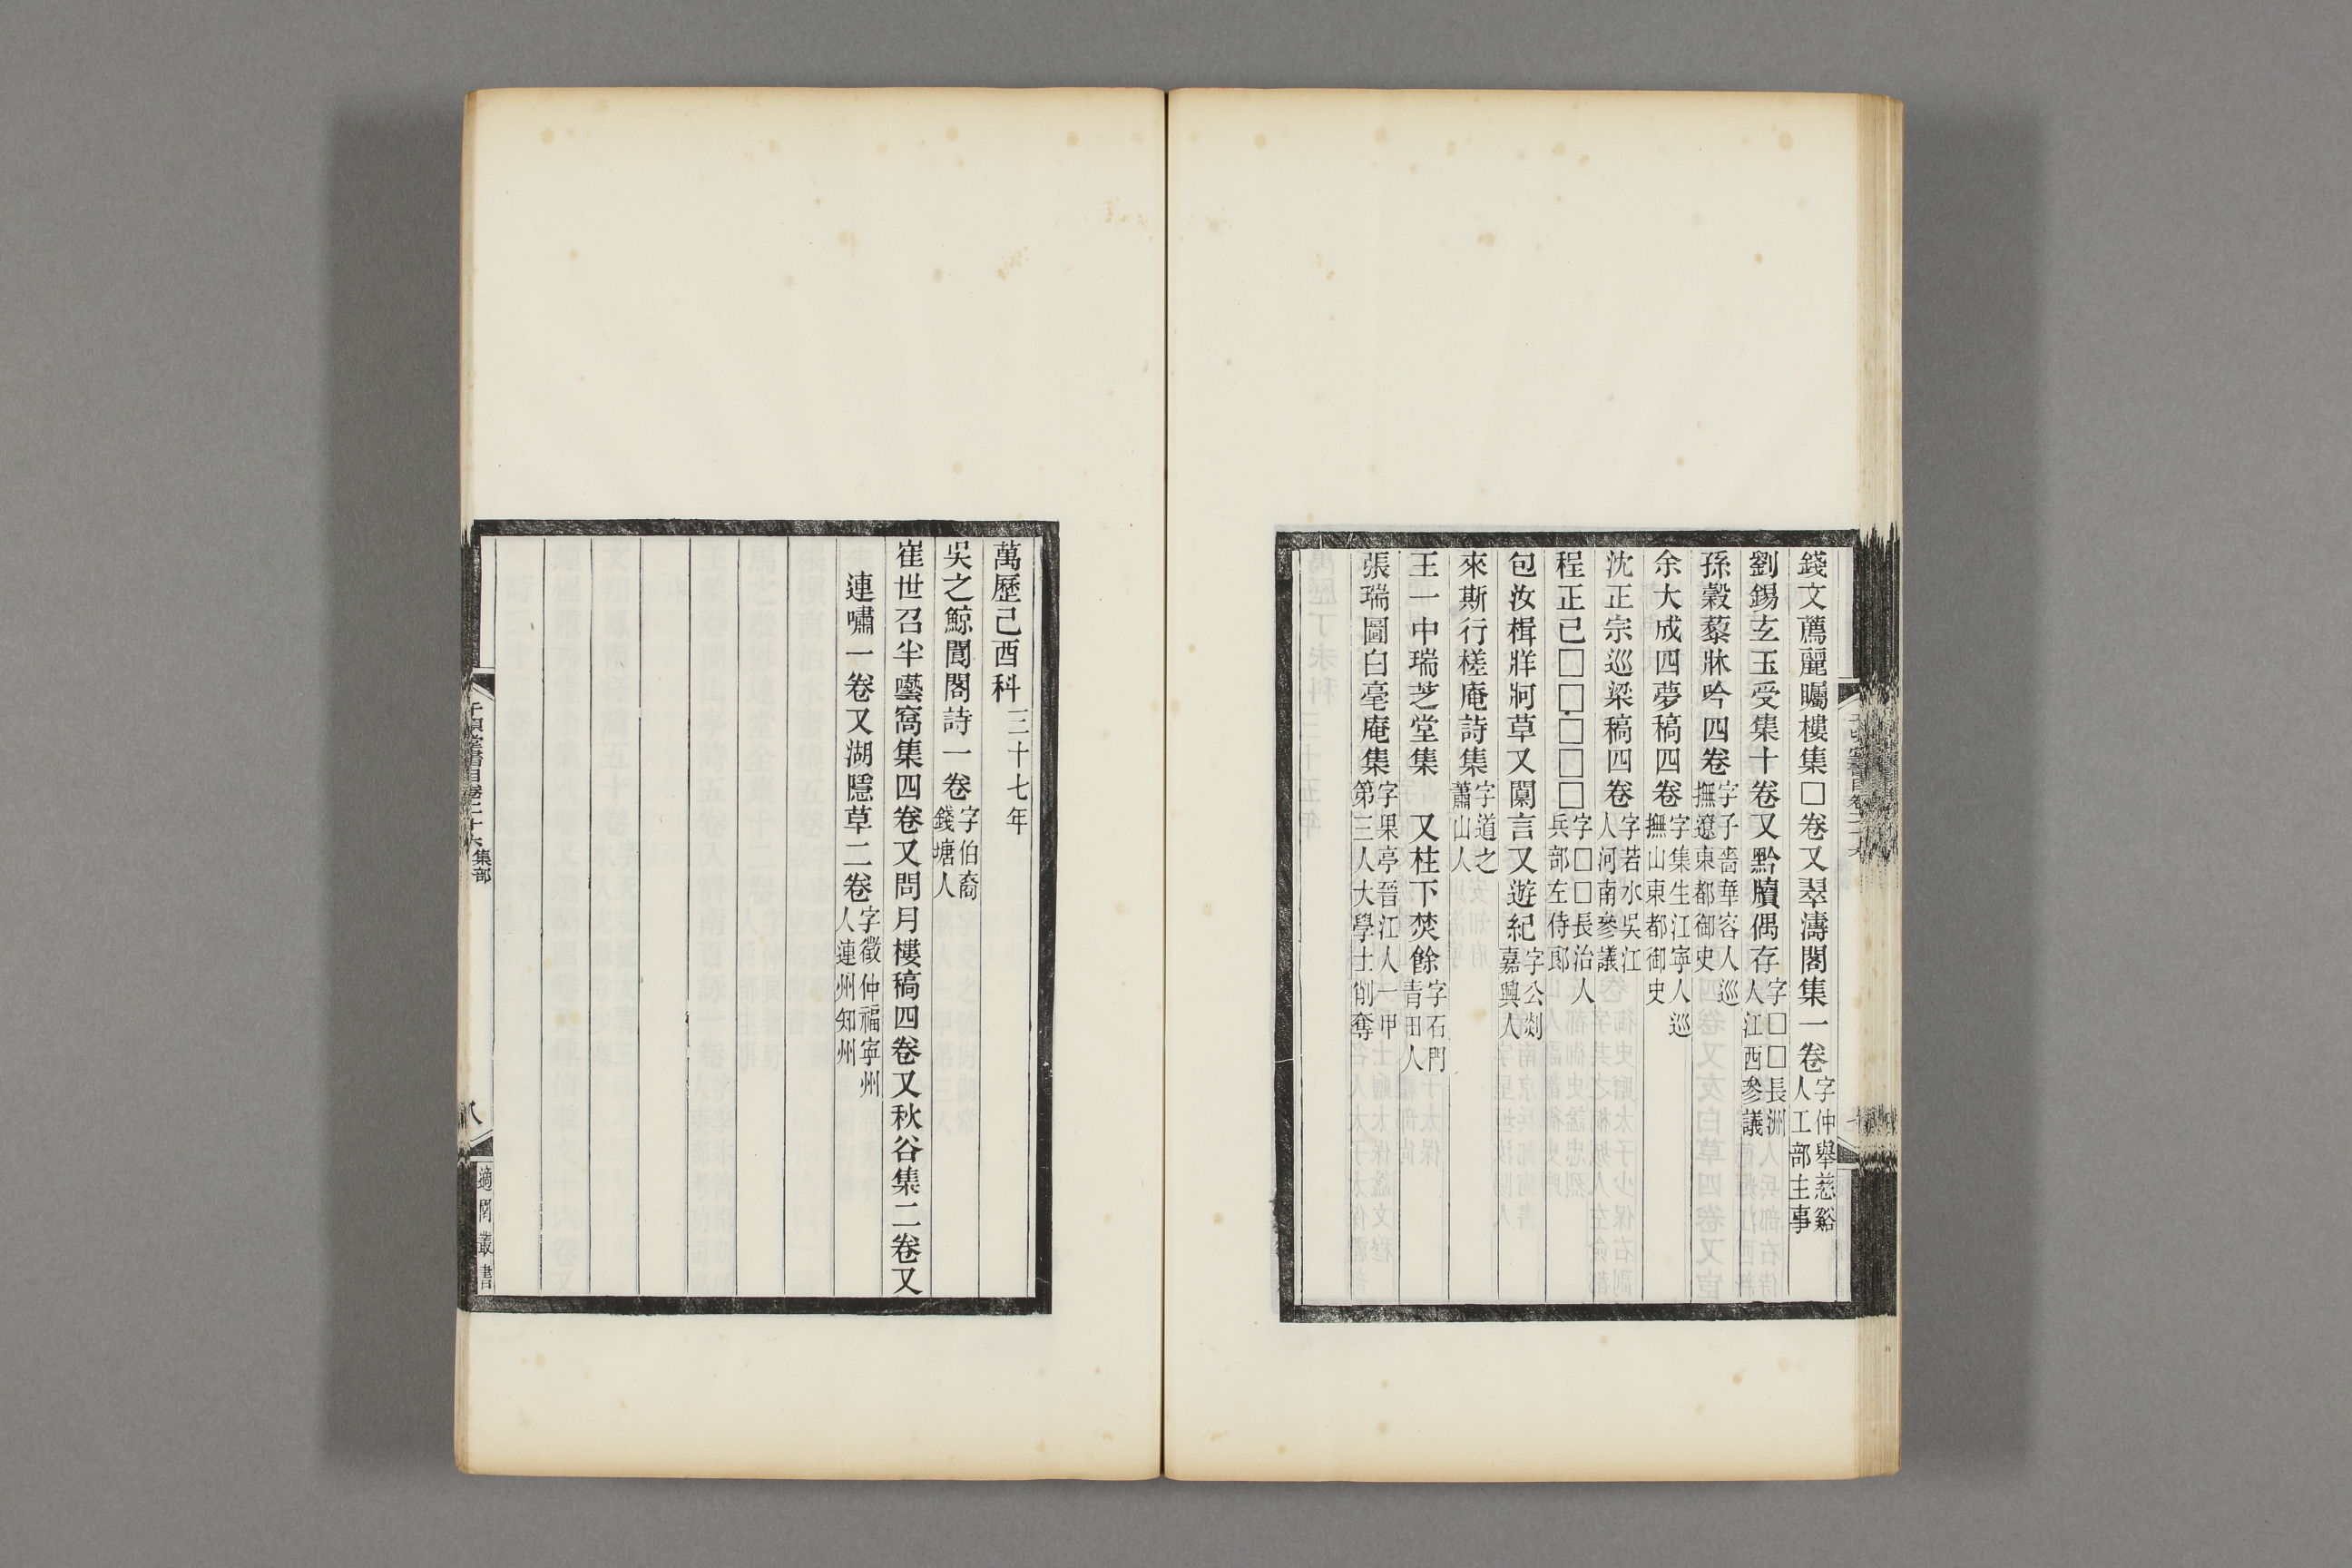 錢文薦麗矚樓集□卷又翠濤閣集一卷字仲舉慈谿人工部主事
劉錫玄玉受集十卷又黔牘偶存字□□長洲人江西參議
孫穀藜牀吟四卷字子嗇華容人巡撫遼東都御史
余大成四夢稿四卷字集生江寧人巡撫山東都御史
沈正宗巡梁稿四卷字若水吳江人河南參議
程正己□□□□□字□□長治人兵部左侍郎
包汝楫牂牁草又闑言又遊紀字公剡嘉興人
來斯行槎庵詩集字道之蕭山人
王一中瑞芝堂集 又柱下焚餘字石門青田人
張瑞圖白毫庵集字果亭晉江人一甲第三人大學士削奪
萬歷己酉科三十七年
吳之鯨聞閣詩一卷字伯裔錢塘人
崔世召半囈窩集四卷又問月樓稿四卷又秋谷集二卷又
連嘯一卷又湖隱草二卷字徵仲福寧州人連州知州
千頃堂書目卷二十六 集部
八
適園叢書